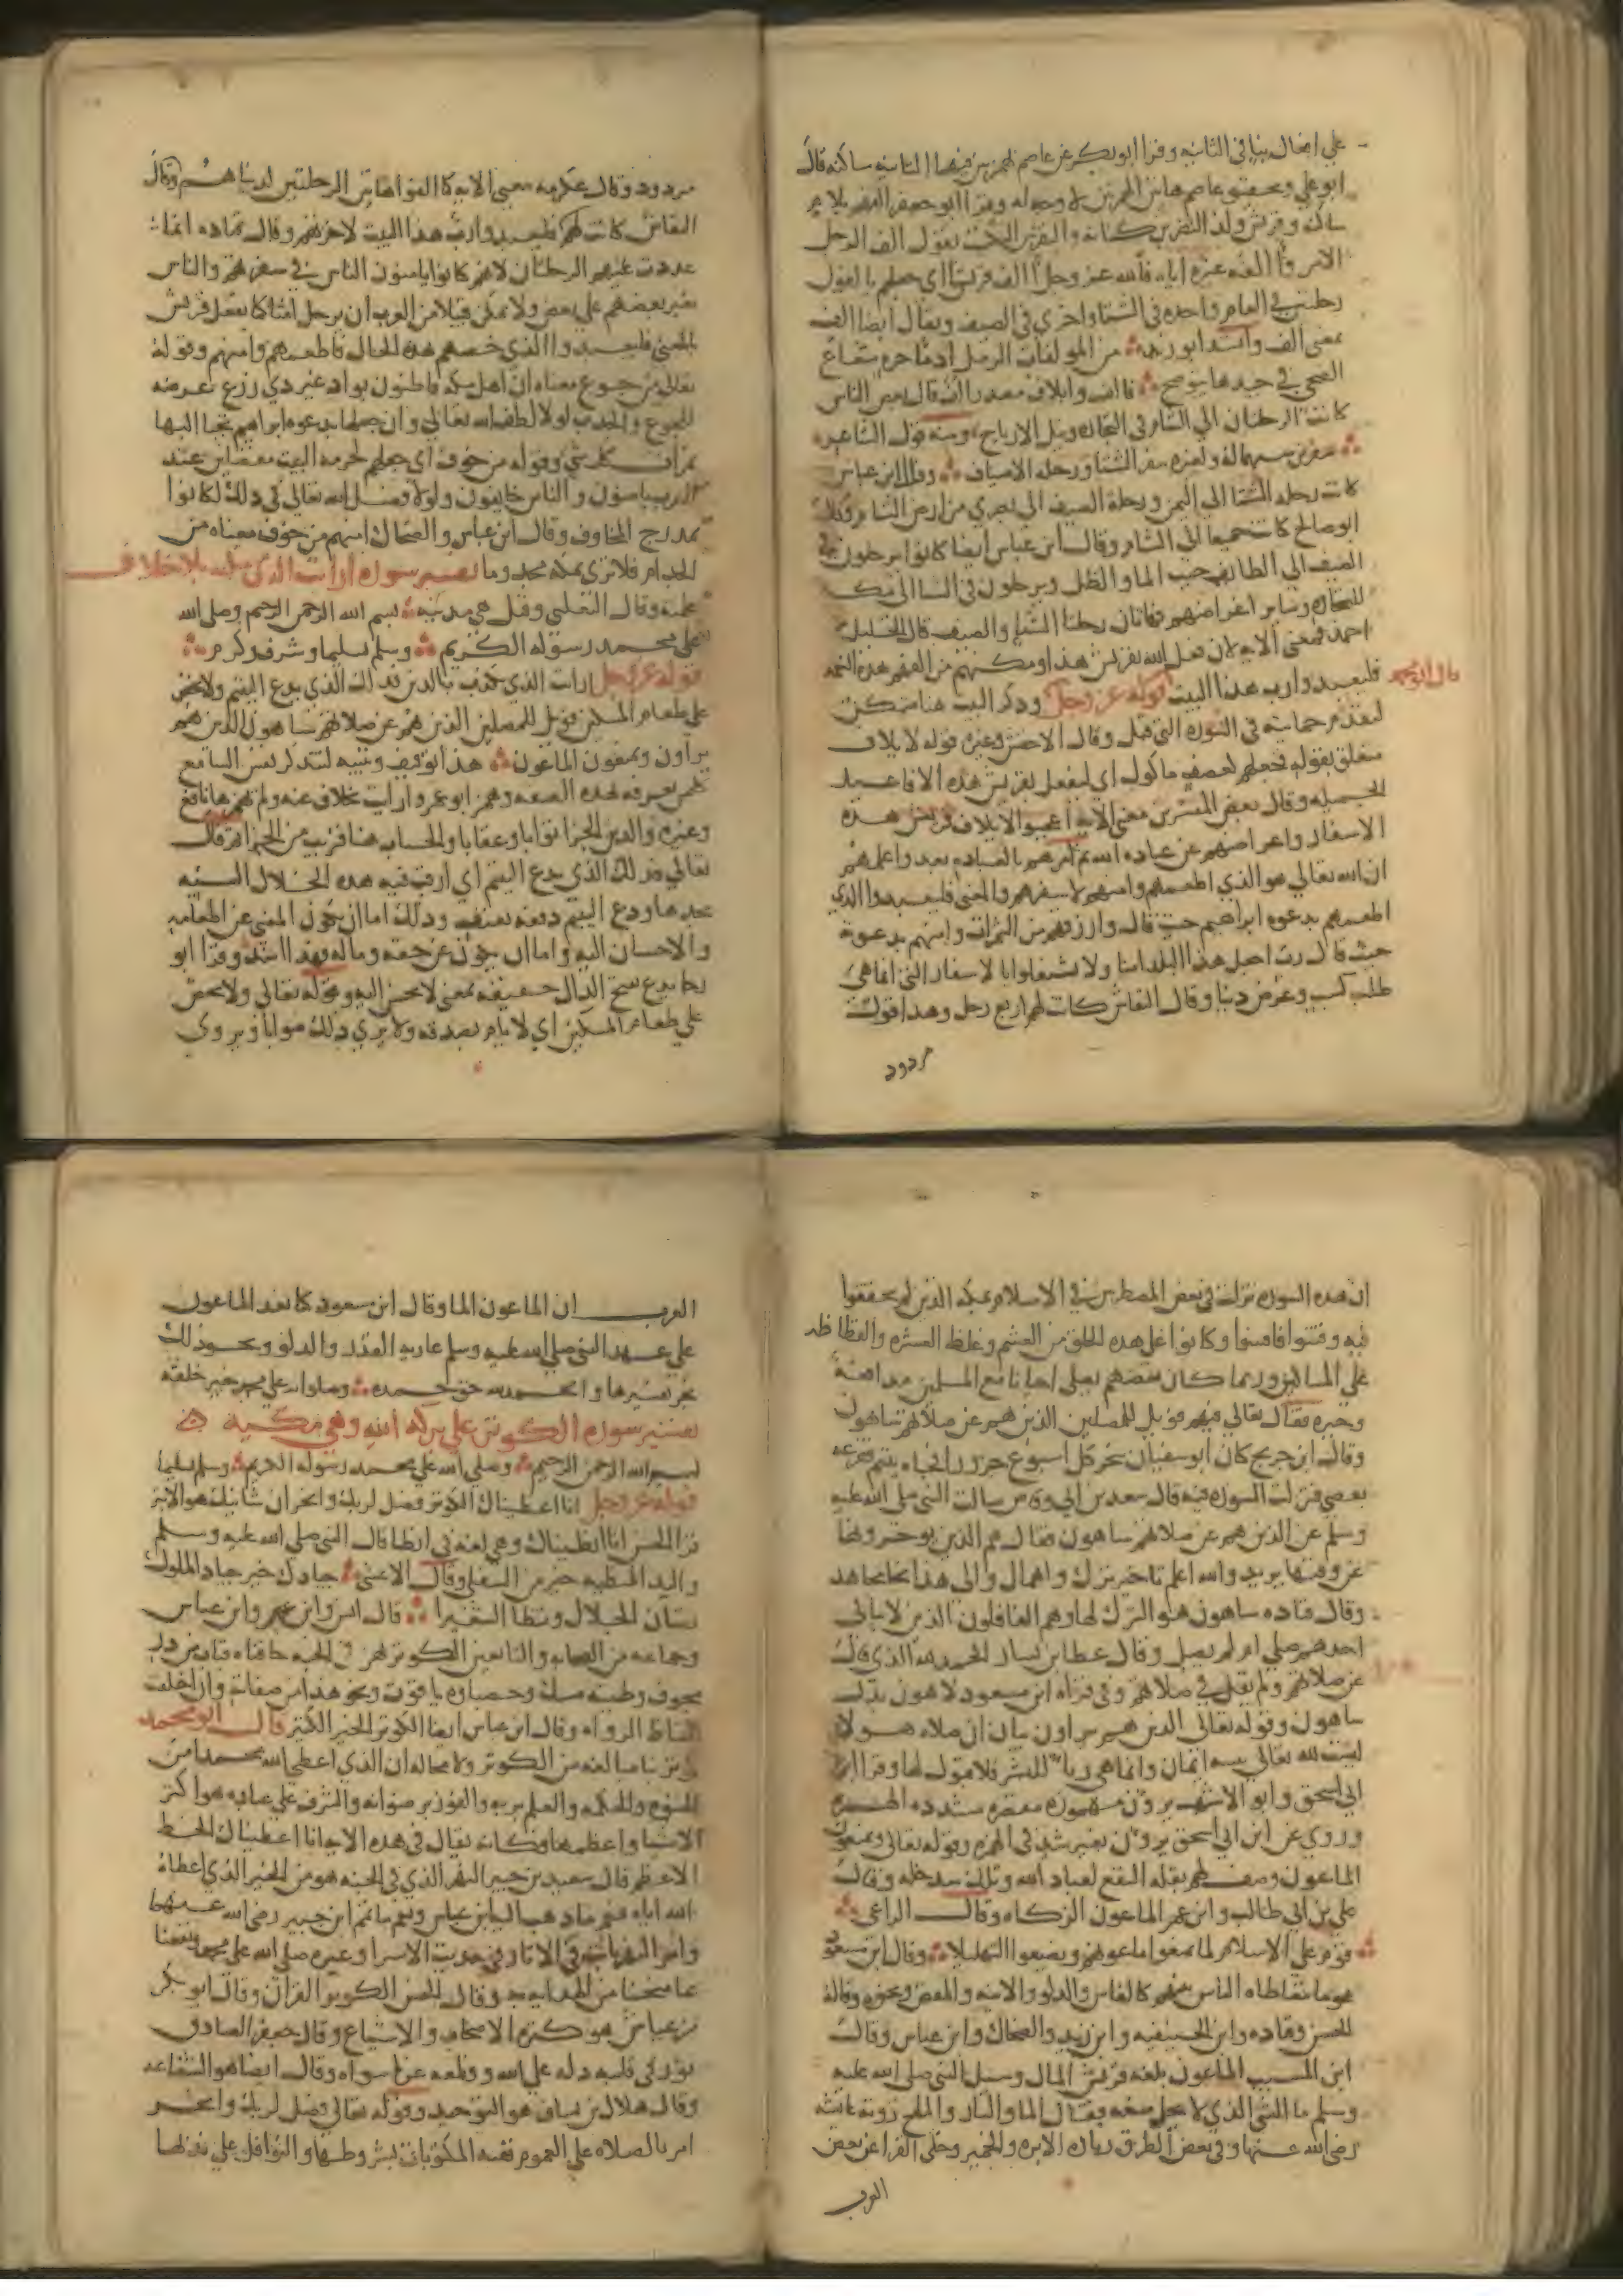 على ابدال ياء في الثانية وقرا ابو بكر عن عاصم بهمزتين فيهما الثانية ساكنة قال
ابو علي وتحقيق عاصم هاتين الهمزتين لا وجه له وقرا ابو جعفر
وقريش ولد النضر بن كنانة والتقرش التكسب تقول الف الرجل
الامر والفه غيره اياه فالله عز وجل الف قريشا اي جعلهم يالفون
رحلتين في العام واحدة في الشتا واخرى في الصيف ويقال ايضا الف
بمعنى الف وانشد ابو زيد من المولفات الرمل ادماء حرة شعاع
الضحى في جيدها يتوضح فالف وايلاف مصدر الف قال بعض الناس
كانت الرحلتان الى الشام في التجارة وقيل الارباح ومنه قول الشاعر
سفرين بينهما له ولغيره سفر الشتا ورحلة الاصياف وقال ابن عباس
كانت رحلة الشتا الى اليمن ورحلة الصيف الى بصرى من ارض الشام وقال
ابو صالح كانت جميعا الى الشام وقال ابن عباس ايضا كانوا يرحلون في
الصيف الى الطايف حيث الما والظل ويرحلون في الشتا الى مكة
للتجارة وساير اغراضهم فهاتان رحلتا الشتا والصيف قال الخليل بن
احمد فمعنى الاية لان فعل الله بقريش هذا ومكنهم من الفهم هذه النعمة
فليعبدوا رب هذا البيت قوله عز وجل وذكر البيت هنا متمكن
لتقدم حمايته في السورة التي قبل وقال الاخفش وغيره قوله لايلاف
متعلق بقوله فجعلهم كعصف ماكول اي ليفعل بقريش هذه الافاعيل
الجميلة وقال بعض المفسرين معنى الاية اعجبوا لايلاف قريش هذه
الاسفار واعراضهم عن عبادة الله ثم امرهم بالعبادة بعد واعلمهم
ان الله تعالى هو الذي اطعمهم وامنهم لاسفرهم والمعنى فليعبدوا الذي
اطعمهم بدعوة ابراهيم حيث قال وارزقهم من الثمرات وامنهم بدعوته
حيث قال رب اجعل هذا البلد امنا ولا يشتغلوا بالاسفار التي انما هي
طلب كسب وعرض دنيا وقال النقاش كانت لهم اربع رحل وهذا قول
مردود
مردود وقال عكرمة معنى الاية كما الفوا هاتين الرحلتين لدنياهم وقال
النقاش كانت لهم فليعبدوا رب هذا البيت لاخرتهم وقال قتادة انما
عددت عليهم الرحلتان لانهم كانوا يامنون الناس في سفرهم والناس
يغير بعضهم على بعض ولا يمكن قبيلا من العرب ان يرحل امنا كما تفعل قريش
المعنى فليعبدوا الذي خصهم بهذه الحال فاطعمهم وامنهم وقوله
تعالى من جوع معناه ان اهل مكة قاطنون بواد غير ذي زرع عرضة
للجوع والجدب لولا لطف الله تعالى وان جعلها بدعوة ابراهيم تجبا اليها
ثمرات كل شي وقوله من خوف اي جعلهم لحرمة البيت مفضلين عند
العرب يامنون والناس خايفون ولولا فضل الله تعالى في ذلك لكانوا
بمدرج المخاوف وقال ابن عباس والضحاك امنهم من خوف معناه من
الجذام فلا ترى بمكة مجذوما تفسير سورة ارايت الذي مكية بلا خلاف
علمته وقال الثعلبي وقيل هي مدنية بسم الله الرحمن الرحيم وصلى الله
على محمد رسوله الكريم وسلم تسليما وشرف وكرم
قوله عز وجل ارايت الذي يكذب بالدين فذلك الذي يدع اليتيم ولا يحض
على طعام المسكين فويل للمصلين الذين هم عن صلاتهم ساهون الذين هم
يراون ويمنعون الماعون هذا توقيف وتنبيه لتتذكر نفس السامع
كل من يعرفه بهذه الصفة وهمز ابو عمرو ارايت بخلاف عنه ولم يهمزها نافع
وغيره والدين الجزا ثوابا وعقابا والحساب هنا قريب من الجزا ثم قال
تعالى فذلك الذي يدع اليتيم اي ارقب فيه هذه الخلال السيئة
تجدها ودع اليتيم دفعه بعنف وذلك اما ان يكون المعنى عن اطعامه
والاحسان اليه واما ان يكون عن حقه وماله فهذا اشد وقرا ابو
رجا يدع بفتح الدال خفيفة بمعنى لا يحسن اليه وقوله تعالى ولا يحض
على طعام المسكين اي لا يامر بصدقة ولا يرى ذلك صوابا ويروى
ان هذه السورة نزلت في بعض المضطربين في الاسلام بمكة الذين لم يحققوا
فيه وفتنوا فافتتنوا وكانوا على هذه الخلق من الغشم وغلظ العشرة والفظاظة
على المساكين وربما كان بعضهم يصلي احيانا مع المسلمين مدافعة
وحيرة فقال تعالى فيهم فويل للمصلين الذين هم عن صلاتهم ساهون
وقال ابن جريج كان ابو سفيان ينحر كل اسبوع جزورا فجاه يتيم فقرعه
بعصى فنزلت السورة فيه قال سعد بن ابي وقاص سالت النبي صلى الله عليه
وسلم عن الذين هم عن صلاتهم ساهون فقال هم الذين يوخرونها
عن وقتها يريد والله اعلم تاخير ترك واهمال والى هذا نحا مجاهد
وقال قتادة ساهون هو الترك لها وهم الغافلون الذين لا يبالي
احدهم صلى ام لم يصل وقال عطا بن يسار الحمد لله الذي قال
عن صلاتهم ولم يقل في صلاتهم وفي قراة ابن مسعود لاهون بدل
ساهون وقوله تعالى الذين هم يراون بيان ان صلاة هولا
ليست لله تعالى بنية ايمان وانما هي ريا للبشر فلا قبول لها وقرا ابن
ابي اسحق وابو الاشهب يرون مهموزة مقصورة مشددة الهمزة
وروي عن ابن ابي اسحق يرون بغير شد في الهمزة وقوله تعالى ويمنعون
الماعون وصف لهم بقلة النفع لعباد الله وتلك شر خلة وقال
علي بن ابي طالب وابن عمر الماعون الزكاة وقال الراعي
قوم على الاسلام لما يمنعوا ماعونهم ويضيعوا التهليلا وقال ابن مسعود
هو ما يتعاطاه الناس بينهم كالفاس والدلو والانية والمقص ونحوه وقاله
الحسن وقتادة وابن الحنفية وابن زيد والضحاك وابن عباس وقال
ابن المسيب الماعون بلغة قريش المال وسيل النبي صلى الله عليه
وسلم ما الشي الذي لا يحل منعه فقال الما والنار والملح روته عايشة
رضي الله عنها وفي بعض الطرق زيادة الابرة والخمير وحكى الفرا عن بعض
العرب
العرب ان الماعون الما وقال ابن مسعود كنا نعد الماعون
على عهد النبي صلى الله عليه وسلم عارية القدر والدلو ونحو ذلك
نجز تفسيرها والحمد لله حق حمده وصلواته على محمد خير خلقه
تفسير سورة الكوثر على بركة الله وهي مكية
بسم الله الرحمن الرحيم وصلى الله على محمد رسوله الكريم وسلم تسليما
قوله عز وجل انا اعطيناك الكوثر فصل لربك وانحر ان شانئك هو الابتر
قرا الحسن انا انطيناك وهي لغة في اعطا قال النبي صلى الله عليه وسلم
واليد المنطية خير من السفلى وقال الاعشى جيادك خير جياد الملوك
تصان الجلال وتنطا الشعيرا قال انس وابن عمر وابن عباس
وجماعة من الصحابة والتابعين الكوثر نهر في الجنة حافتاه قباب من در
مجوف وطينه مسك وحصباوه ياقوت ونحو هذا من صفاته وان اختلفت
الفاظ الرواة وقال ابن عباس ايضا الكوثر الخير الكثير قال ابو محمد
كوثر بنا مبالغة من الكوثر ولا محالة ان الذي اعطى الله محمدا من
النبوة والحكمة والعلم بربه والفوز برضوانه والشرف على عباده هو اكثر
الاشيا واعظمها فكانه يقال في هذه الاية انا اعطيناك الحظ
الاعظم قال سعيد بن جبير النهر الذي في الجنة هو من الخير الذي اعطاه
الله اياه فنعم ما ذهب اليه ابن عباس ونعم ما تمم ابن جبير رضي الله عنهما
وامر النهر ثابت في الاثار وفي حديث الاسرا وغيره صلى الله على محمد ونفعنا
بما منحنا من الهداية به وقال الحسن الكوثر القران وقال ابو بكر
بن عياش هو كثرة الاصحاب والاشياع وقال جعفر الصادق
نور في قلبه دله على الله وقطعه عما سواه وقال ايضا هو الشفاعة
وقال هلال بن يساف هو التوحيد وقوله تعالى فصل لربك وانحر
امر بالصلاة على العموم ففيه المكتوبات بشروطها والنوافل على ندبها